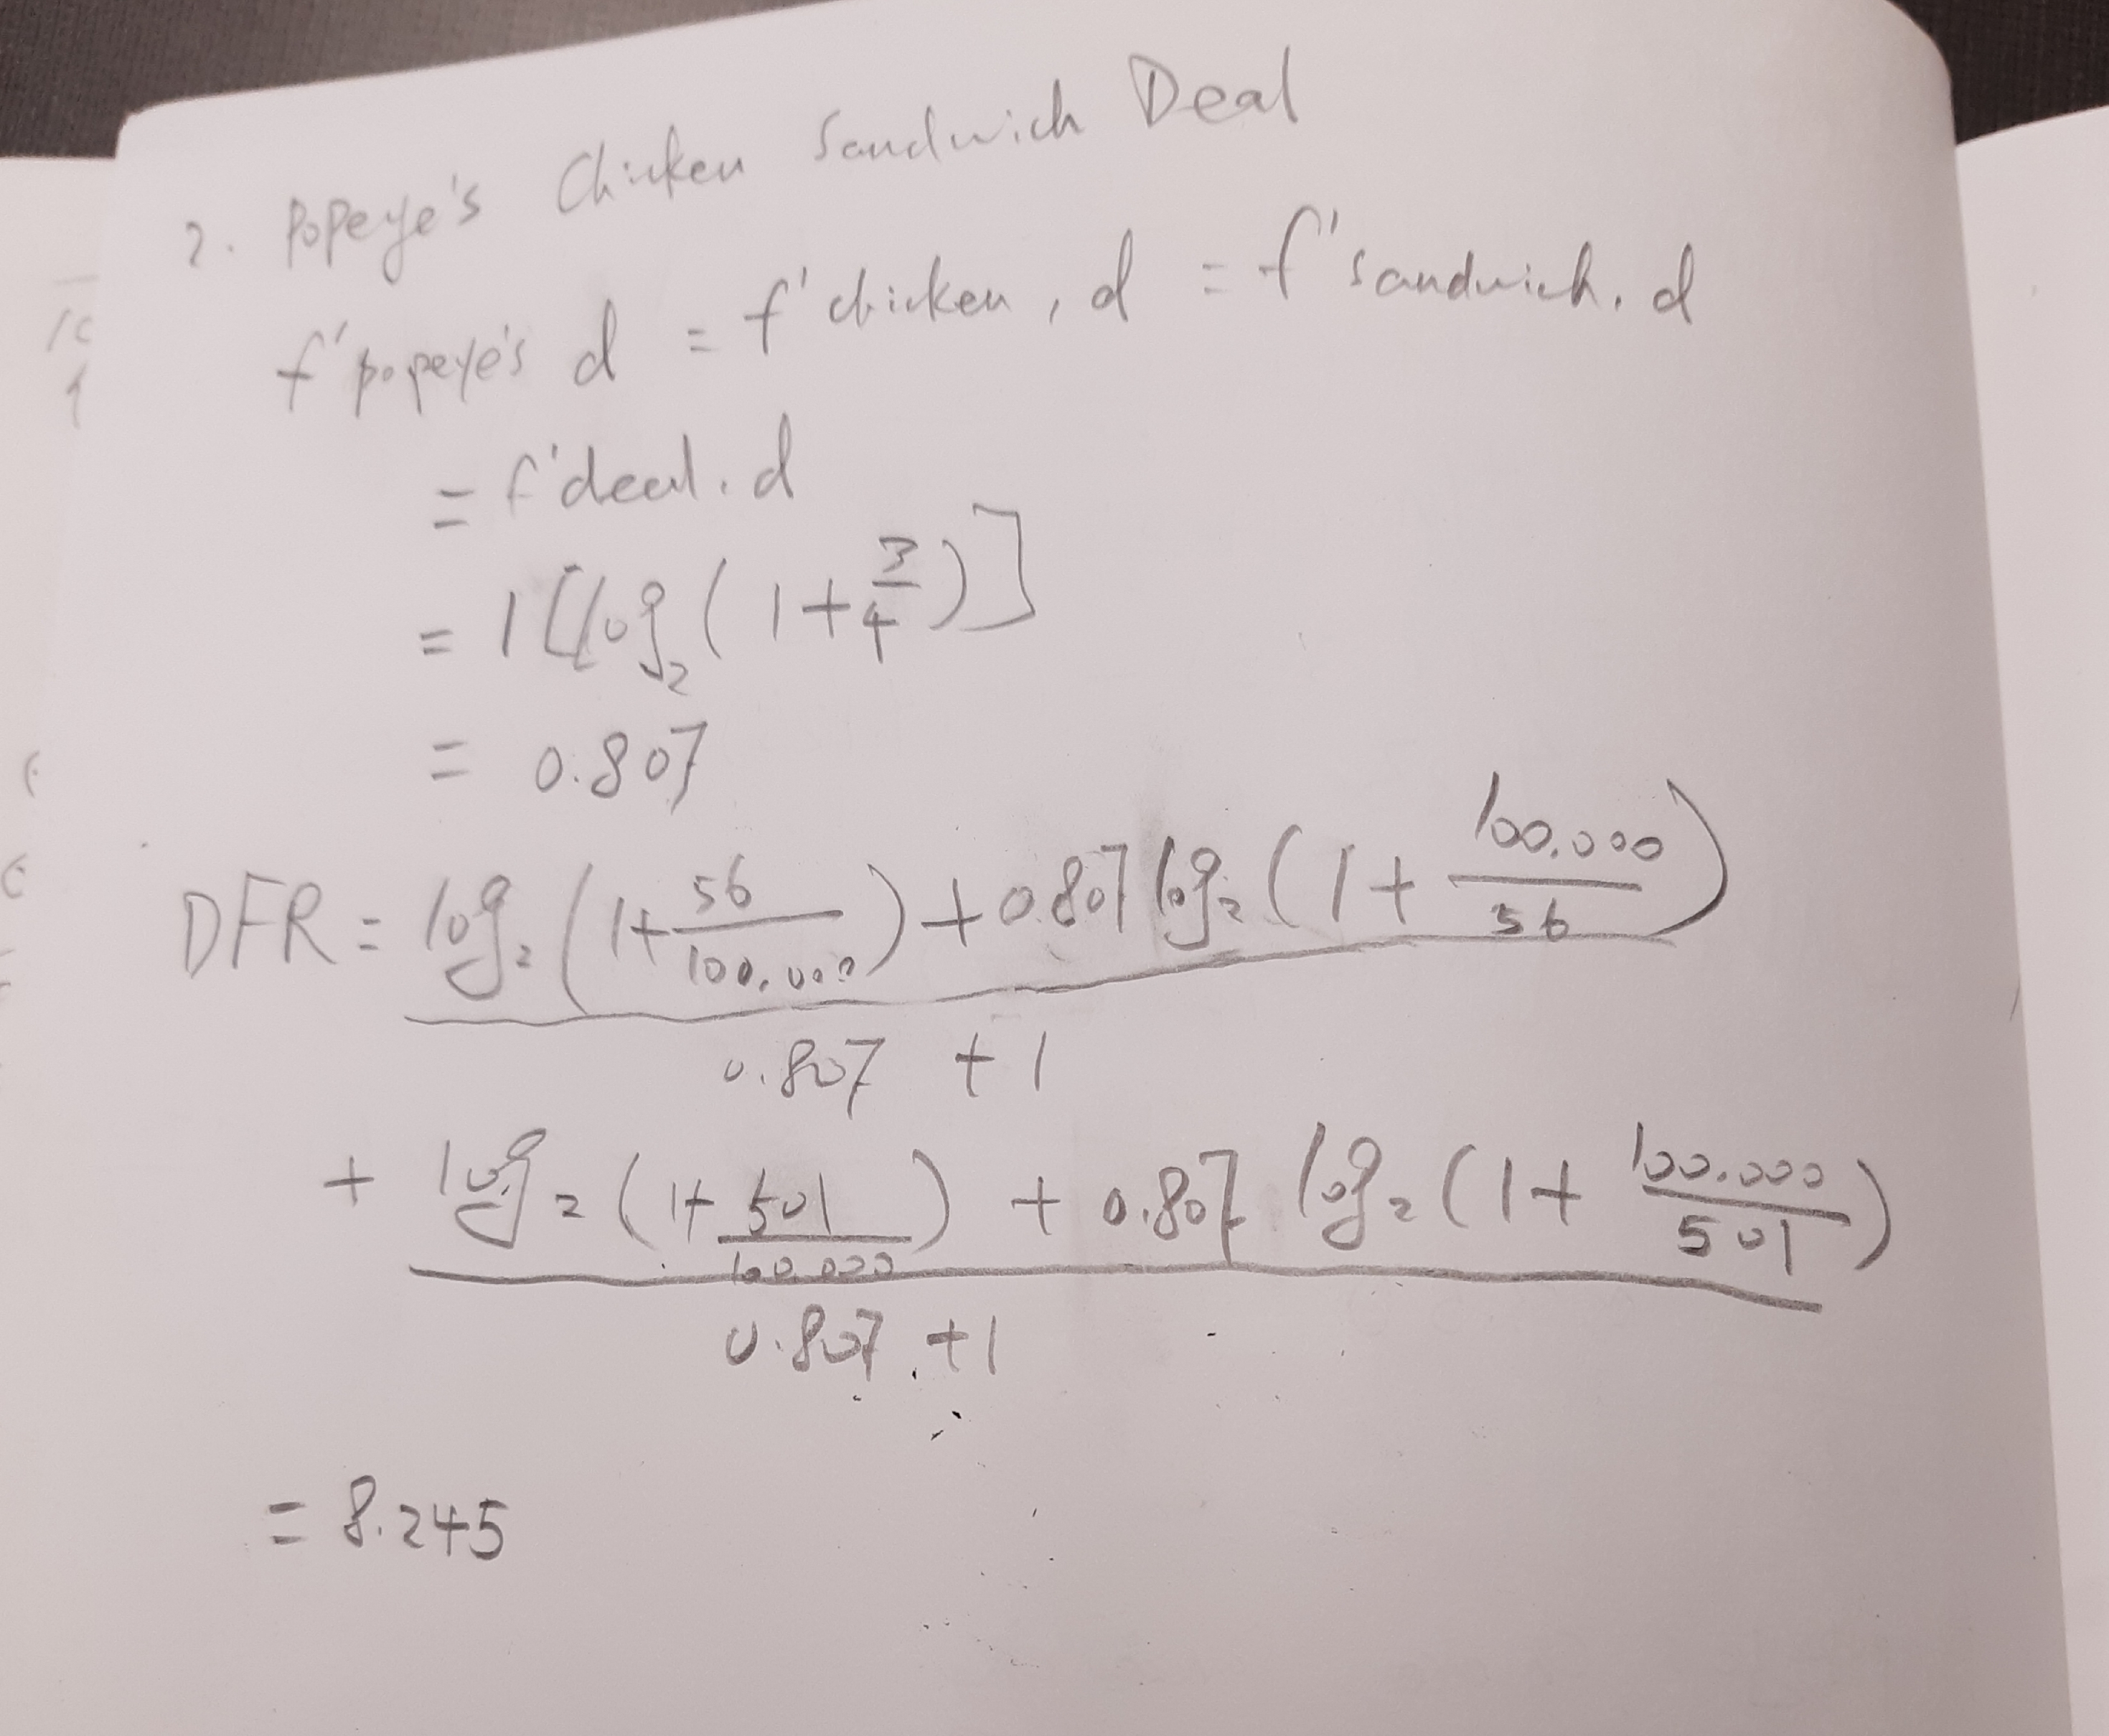 2. Popeye's Chicken Sandwich Deal
f'popeye's d = f'chicken, d = f'sandwich, d
= f'deal, d
= 1 [log₂ (1 + 3/4)]
= 0.807
DFR = log₂ (1 + 56/100,000) + 0.807 log₂ (1 + 100,000/56)
0.807 + 1
+ log₂ (1 + 501/100,000) + 0.807 log₂ (1 + 100,000/501)
0.807 + 1
= 8.245